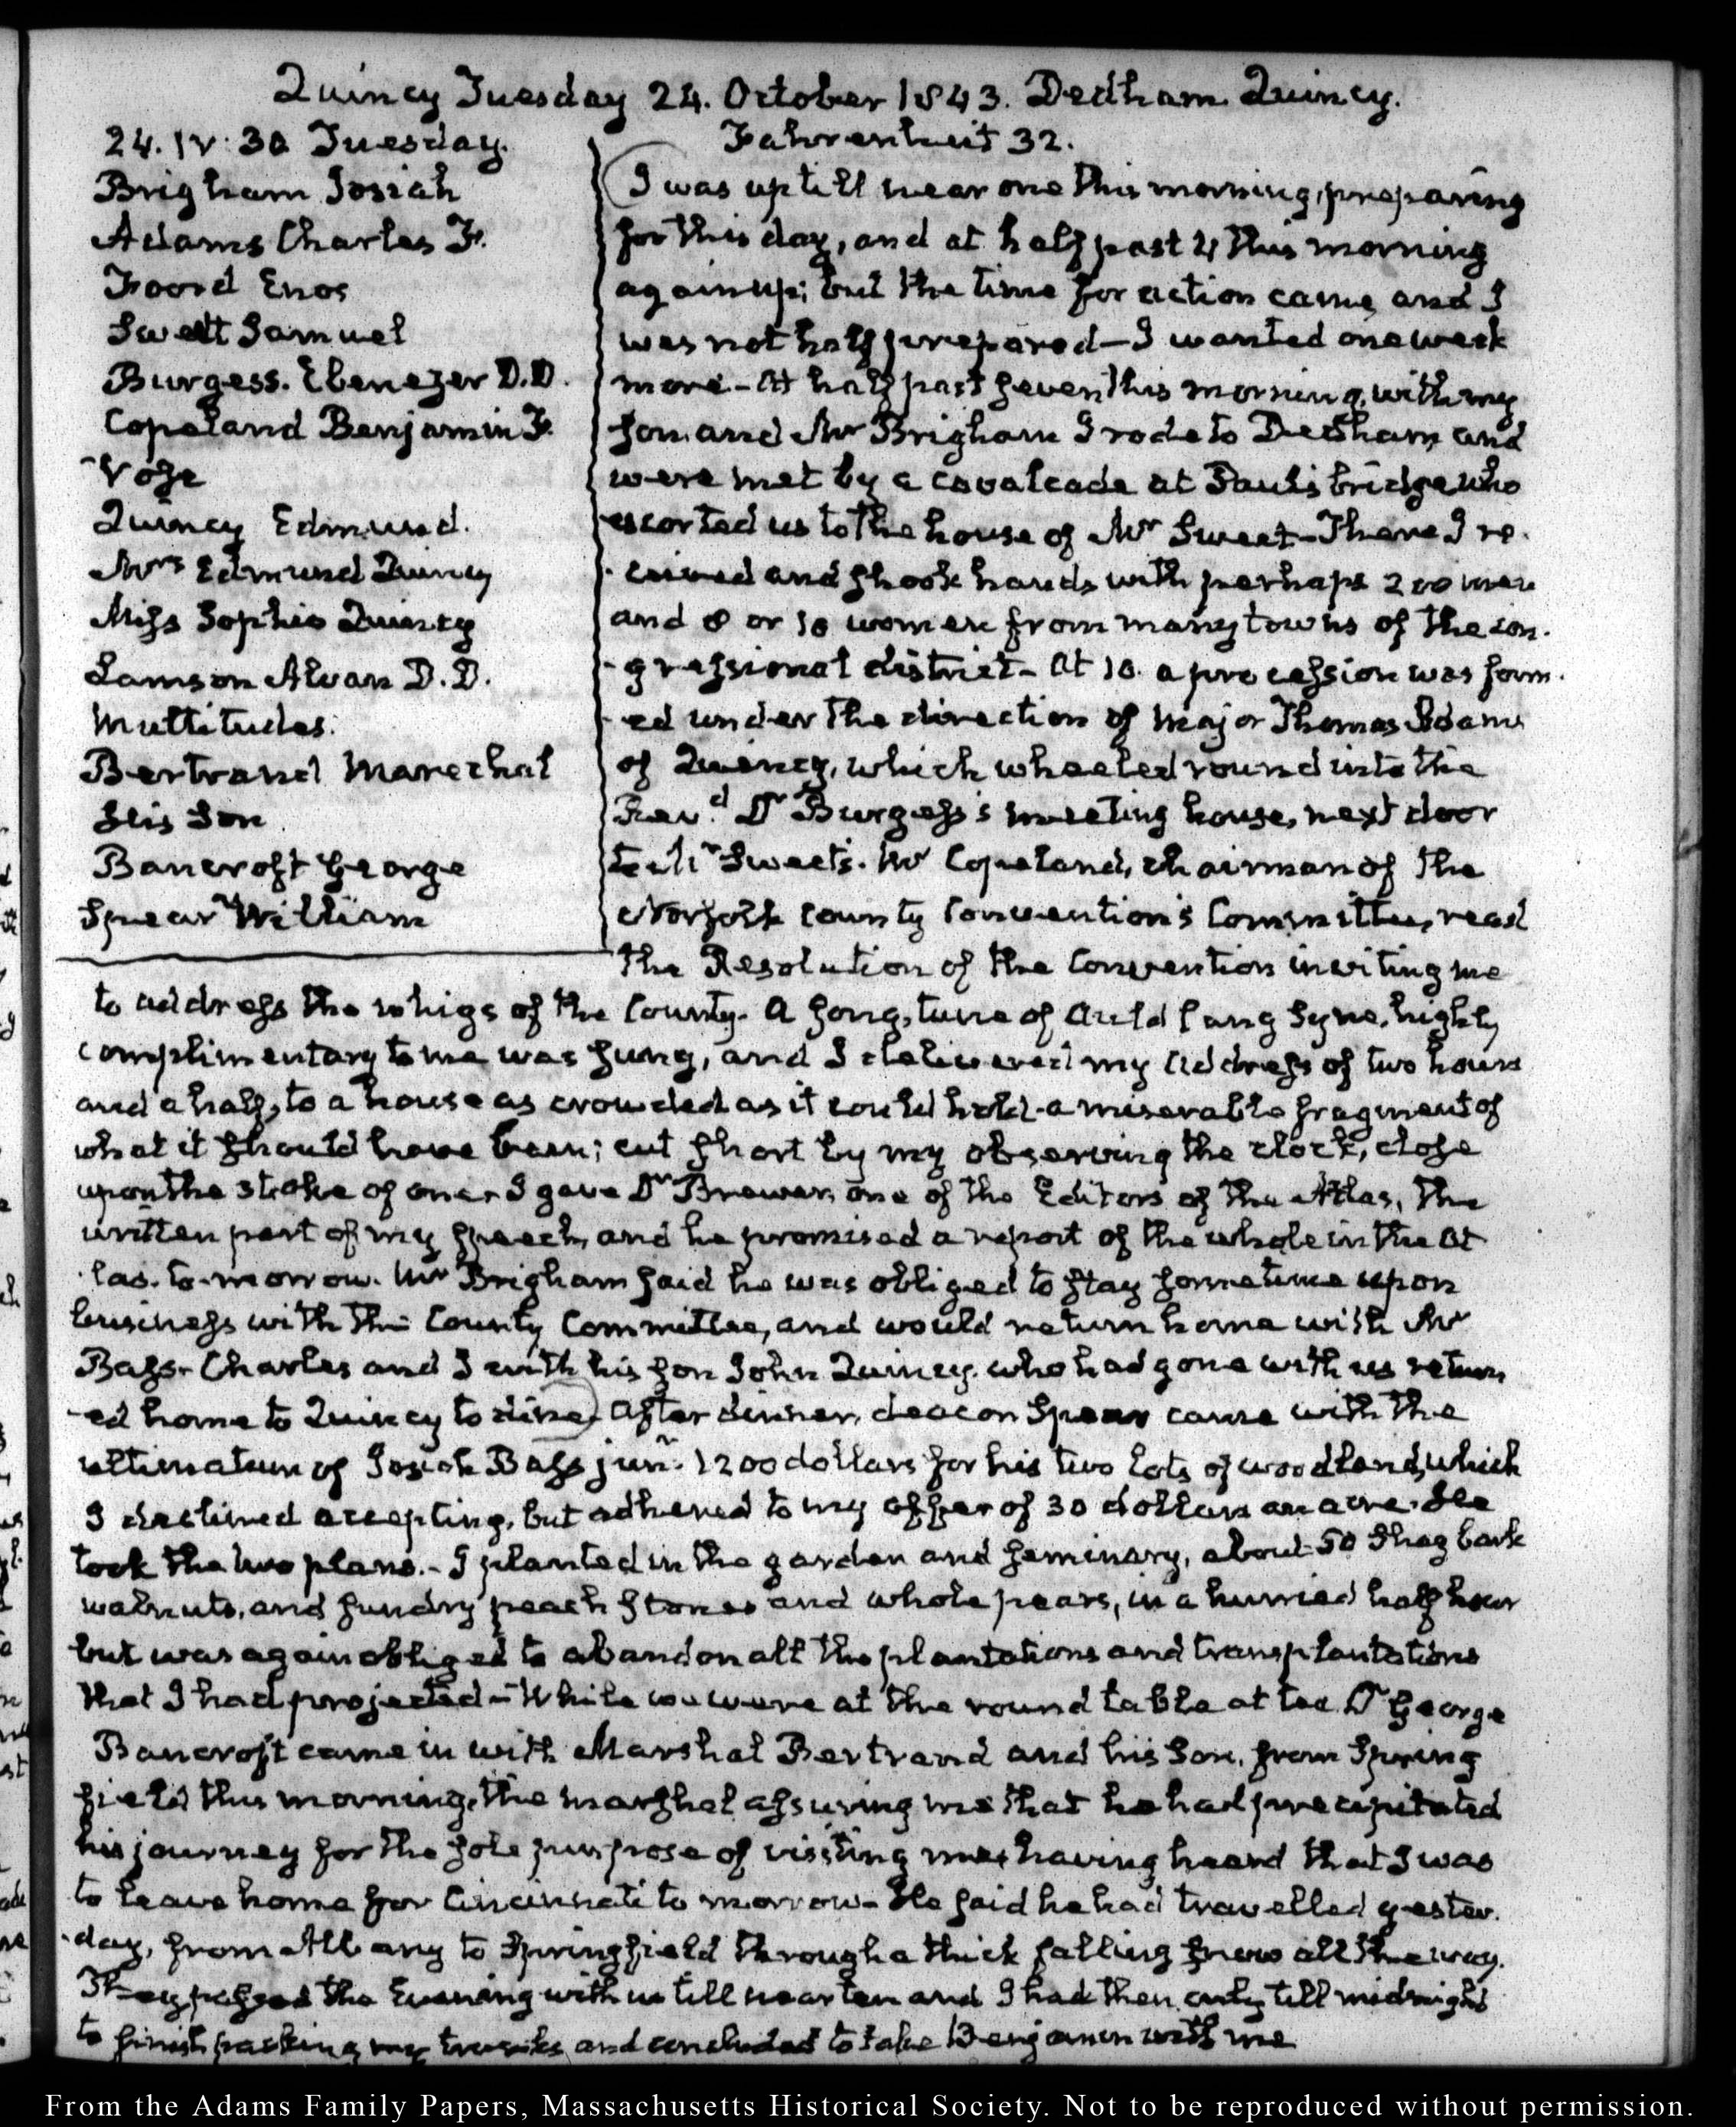 Quincy Tuesday 24. October 1843. Dedham. Quincy.
24. IV: 30 Tuesday.
Brigham Josiah
Adams Charles F.
Foord Enos
Swett Samuel
Burgess. Ebenezer D.D.
Copeland Benjamin F.
Vose
Quincy Edmund.
Mrs Edmund Quincy
Miss Sophia Quincy
Lamson Alvan D.D.
Multitudes.
Bertrand Marechal
His Son
Bancroft George
Spear William
Fahrenheit 32.
I was up till near one this morning, preparing
for this day, and at half past 4 this morning
again up; but the time for action came, and I
was not half prepared—I wanted one week
more—At half past seven this morning, with my
son and Mr Brigham I rode to Dedham, and
were met by a cavalcade at Paul's bridge who
escorted us to the house of Mr Sweet—There I re-
-ceived and shook hands with perhaps 200 men
and 8 or 10 women from many towns of the con-
-gressional district—At 10. a procession was form-
-ed under the direction of Major Thomas Adams
of Quincy, which wheeled round into the
Revd. Dr Burgess's meeting house, next door
to Mr Sweets. Mr Copeland, chairman of the
Norfolk County Convention's Committee, read
the Resolution of the Convention inviting me
to address the whigs of the County. A song, tune of Auld lang Syne, highly
complimentary to me was sung, and I delivered my address of two hours
and a half, to a house as crowded as it could hold—a miserable fragment of
what it should have been; cut short by my observing the clock, close
upon the stroke of one. I gave Dr Brewer, one of the Editors of the Atlas, the
written part of my speech, and he promised a report of the whole in the At
-las. to-morrow. Mr Brigham said he was obliged to stay sometime upon
business with the County Committee, and would return home with Mr
Bass. Charles and I with his son John Quincy. who had gone with us return
-ed home to Quincy to dine. After dinner, deacon Spear came with the
ultimatum of Josiah Bass junr. 1200 dollars for his two lots of woodland, which
I declined accepting, but adhered to my offer of 30 dollars an acre. He
took the two plans.—I planted in the garden and seminary, about 50 Shagbark
walnuts, and sundry peach stones and whole pears, in a hurried half hour
but was again obliged to abandon all the plantations and transplantations
that I had projected—While we were at the round table at tea Dr George
Bancroft came in with Marshal Bertrand and his Son, from Spring
field this morning, the marshal assuring me that he had precipitated
his journey for the sole purpose of visiting me, having heard that I was
to leave home for Cincinnati to morrow—He said he had travelled yester-
-day, from Albany to Springfield through a thick falling snow all the way.
They passed the Evening with us till near ten and I had then only till midnight
to finish packing my trunks, and concluded to take Benjamin with me
From the Adams Family Papers, Massachusetts Historical Society. Not to be reproduced without permission.